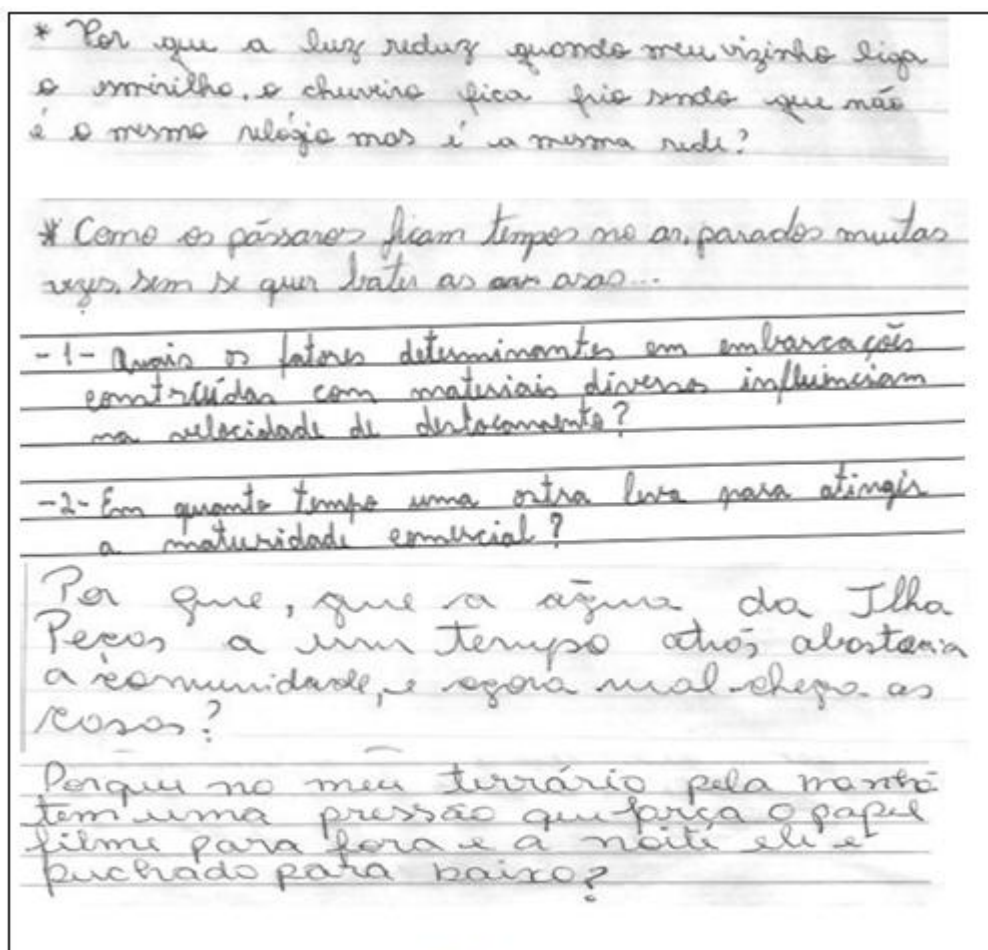 * Por que a luz reduz quando meu vizinho liga
o esmirilho. o chuveiro fica frio sendo que não
é o mesmo relógio mas é a mesma rede?
* Como os pássaros ficam tempos no ar, parados muitas
vezes. sem se quer bater as asas...
-1- Quais os fatores determinantes em embarcações
construídas com materiais diversos influênciam
na velocidade de deslocamento?
-2- Em quanto tempo uma ostra leva para atingir
a maturidade comercial?
Por que, que a água da Ilha
Peças a um tempo atrás abastecia
a comunidade, e agora mal chega as
casas?
Porque no meu terrário pela manhã
tem uma pressão que força o papel
filme para fora e a noite ele é
puchado para baixo?